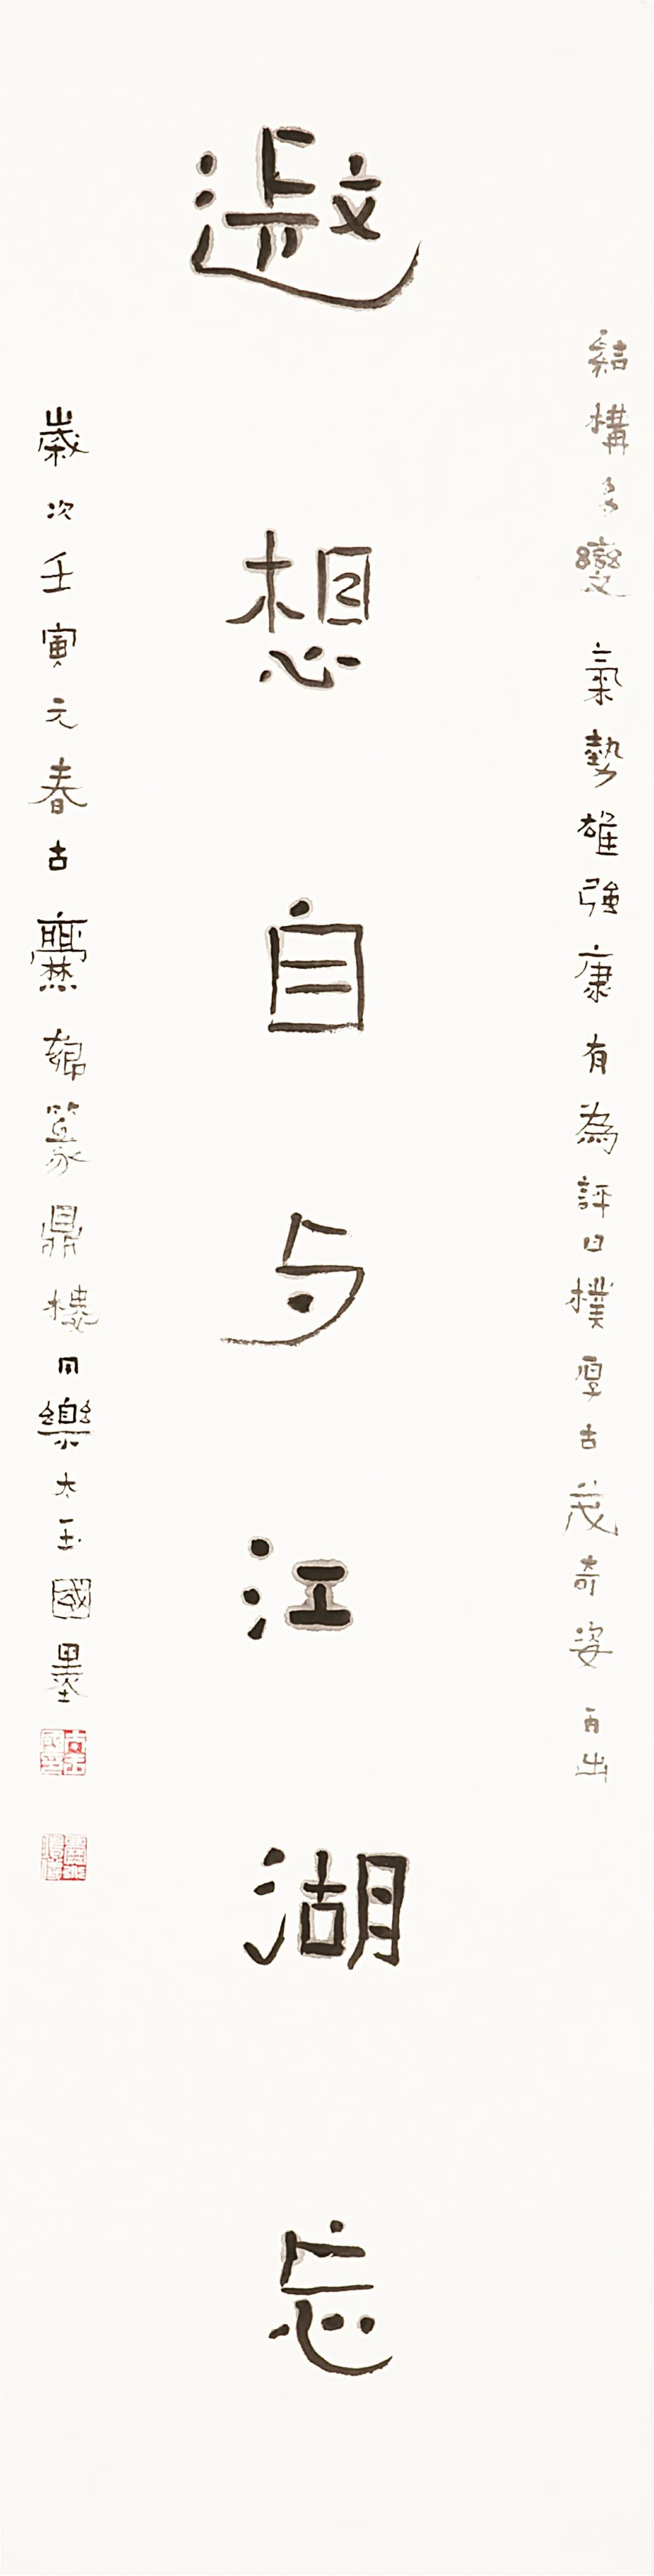 結構多變氣勢雄強康有為評曰樸厚古茂奇姿百出
遐想自与江湖忘
歲次壬寅元春古爨篆鼎樓同樂太玉國墨